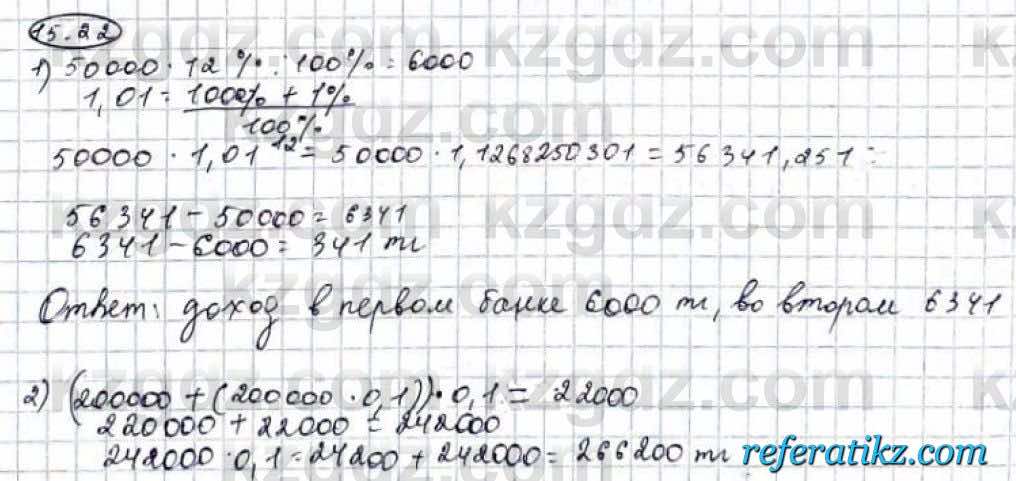 15.22
1) 50000 · 12 % : 100% = 6000
1,01 = 100% + 1%
100%
50000 · 1,01¹² = 50000 · 1,1268250301 = 56341,251 =
56341 - 50000 = 6341
6341 - 6000 = 341 тг
Ответ: доход в первом банке 6000 тг, во втором 6341
2) (200000 + (200000 · 0,1)) · 0,1 = 22000
220000 + 22000 = 242000
242000 · 0,1 = 24200 + 242000 = 266200 тг
referatikz.com
kzgdz.com
kzgdz.com
kzgdz.com
kzgdz.com
kzgdz.com
kzgdz.com